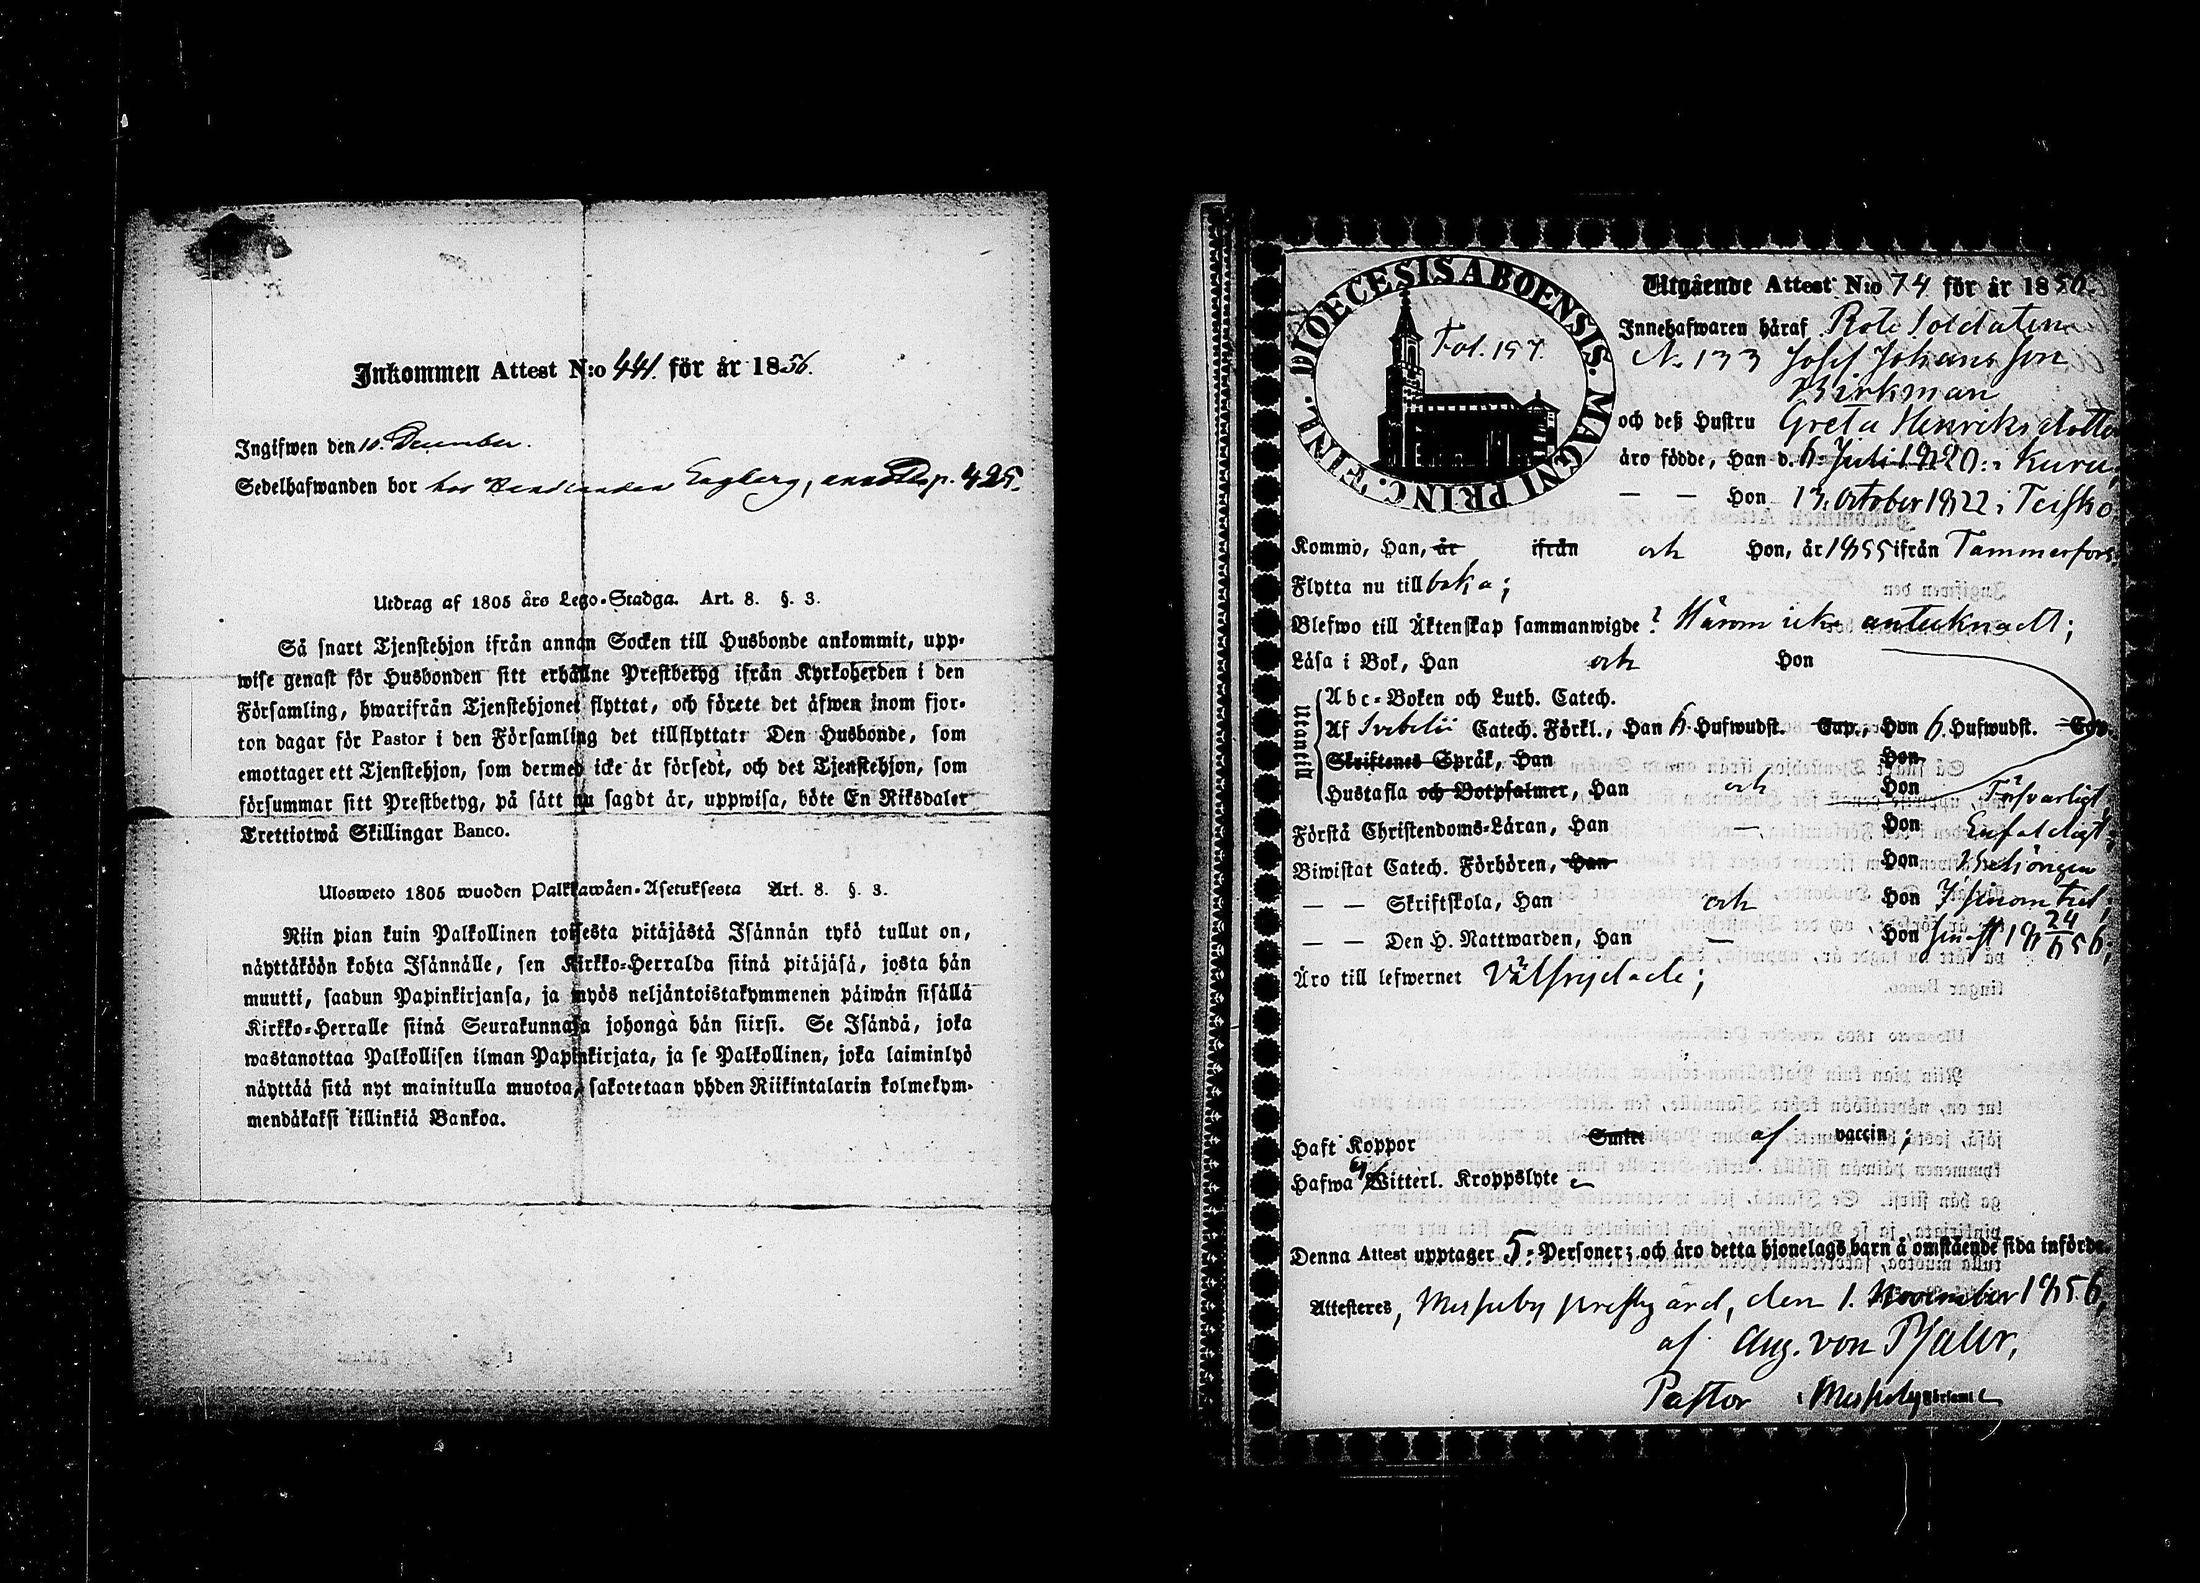 Inkommen Attest N:o 441. för år 1856.
Ingifwen den 10. December.
Sedelhafwanden bor hos Handlanden Engberg, p. 425.
Utdrag af 1805 års Lego-Stadga. Art. 8. §. 3.
Så snart Tjenstehjon ifrån annan Socken till Husbonde ankommit, upp-
wise genast för Husbonden sitt erhållne Prestbetyg ifrån Kyrkoherden i den
Församling, hwarifrån Tjenstehjonet flyttat, och förete det äfwen inom fjor-
ton dagar för Pastor i den Församling det tillflyttat: Den Husbonde, som
emottager ett Tjenstehjon, som dermed icke är försedt, och det Tjenstehjon, som
försummar sitt Prestbetyg, på sätt nu sagdt är, uppwisa, böte En Riksdaler
Trettiotwå Skillingar Banco.
Ulosweto 1805 wuoden Palkkawäen-Asetuksesta Art. 8. §. 3.
Niin pian kuin Palkollinen toisesta pitäjästä Isännän tykö tullut on,
näyttäköön kohta Isännälle, sen Kirkko-Herralda siinä pitäjäsä, josta hän
muutti, saadun Papinkirjansa, ja myös neljäntoistakymmenen päiwän sisällä
Kirkko-Herralle siinä Seurakunnasa johonga hän siirsi. Se Isändä, joka
wastanottaa Palkollisen ilman Papinkirjata, ja se Palkollinen, joka laiminlyö
näyttää sitä nyt mainitulla muotoa, sakotetaan yhden Riikintalarin kolmekym-
mendäkaksi killinkiä Bankoa.
DIOECESIS ABOENSIS. MAGNI PRINC. FINL.
Fol. 157.
Utgående Attest N:o 74 för år 1856.
Innehafwaren häraf Rote Soldaten
N. 133 Josef Johansson
Birkman
och deß Hustru Greta Henriksdotter
äro födde, Han d. 6. Juli 1820. i Kuru,
— — Hon 13. October 1822 i Teisko
Kommo, Han, år ifrån och Hon, år 1855 ifrån Tammerfors
Flytta nu till baka;
Blefwo till Äktenskap sammanwigde? Härom icke antecknadt;
Läsa i Bok, Han och Hon
Utantill
Abc-Boken och Luth. Catech.
Af Svebelii Catech. Förkl., Han 6. Hufwudst. Cap., Hon 6. Hufwudst. Cap.
Skriftenes Språk, Han Hon
Hustafla och Botpsalmer, Han och Hon Försvarligt
Förstå Christendoms-Läran, Han — Hon Enfaldigt;
Biwistat Catech. Förhören, Han Hon Behörigen
— — Skriftskola, Han och Hon
— — Den H. Nattwarden, Han — Hon 24/6 56;
Äro till lefwernet Välfrejdade;
Haft Koppor Smitt af vaccin;
Hafwa ej Witterl. Kroppslyte
Denna Attest upptager 5. Personer; och äro detta hjonelags barn å omstående sida införde.
Attesteres, Messuby prestgård, den 1. November 1856,
af Aug. von Pfaler,
Pastor i Messuby Församl